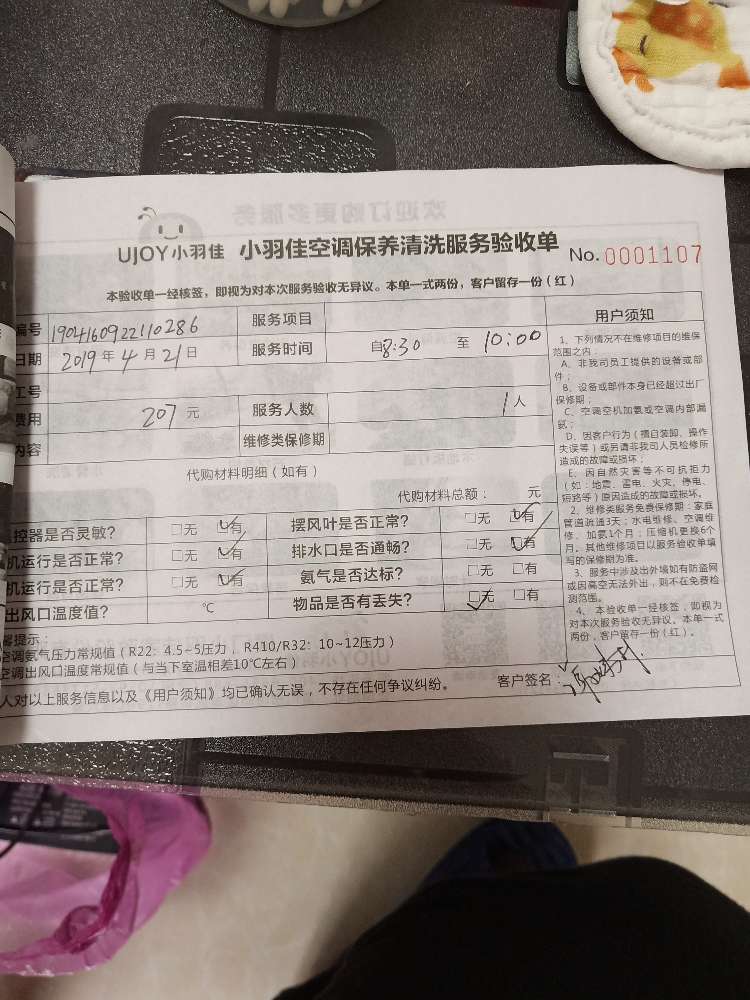 UJOY小羽佳 小羽佳空调保养清洗服务验收单 No. 0001107
本验收单一经核签，即视为对本次服务验收无异议。本单一式两份，客户留存一份（红）
编号 1904160922110286 服务项目
日期 2019年4月21日 服务时间 自8:30 至 10:00
工号
费用 207元 服务人数 1人
内容 维修类保修期
代购材料明细（如有）
代购材料总额： 元
控器是否灵敏？ □无 □有 摆风叶是否正常？ □无 □有
机运行是否正常？ □无 □有 排水口是否通畅？ □无 □有
机运行是否正常？ □无 □有 氨气是否达标？ □无 □有
出风口温度值？ ℃ 物品是否有丢失？ □无 □有
提示：
空调氨气压力常规值（R22：4.5~5压力，R410/R32：10~12压力）
空调出风口温度常规值（与当下室温相差10℃左右）
人对以上服务信息以及《用户须知》均已确认无误，不存在任何争议纠纷。 客户签名：
用户须知
1、下列情况不在维修项目的维保
范围之内：
A、非我司员工提供的设备或部
件；
B、设备或部件本身已经超过出厂
保修期；
C、空调空机加氨或空调内部漏
氨；
D、因客户行为（擅自装卸、操作
失误等）或另请非我司人员检修所
造成的故障或损坏；
E、因自然灾害等不可抗拒力
（如：地震、雷电、火灾、停电、
短路等）原因造成的故障或损坏。
2、维修类服务免费保修期：家庭
管道疏通3天；水电维修、空调维
修、加氨1个月；压缩机更换6个
月。其他维修项目以服务验收单填
写的保修期为准。
3、服务中涉及出外墙如有防盗网
或因高空无法外出，则不在免费检
测范围。
4、本验收单一经核签，即视为
对本次服务验收无异议。本单一式
两份，客户留存一份（红）。